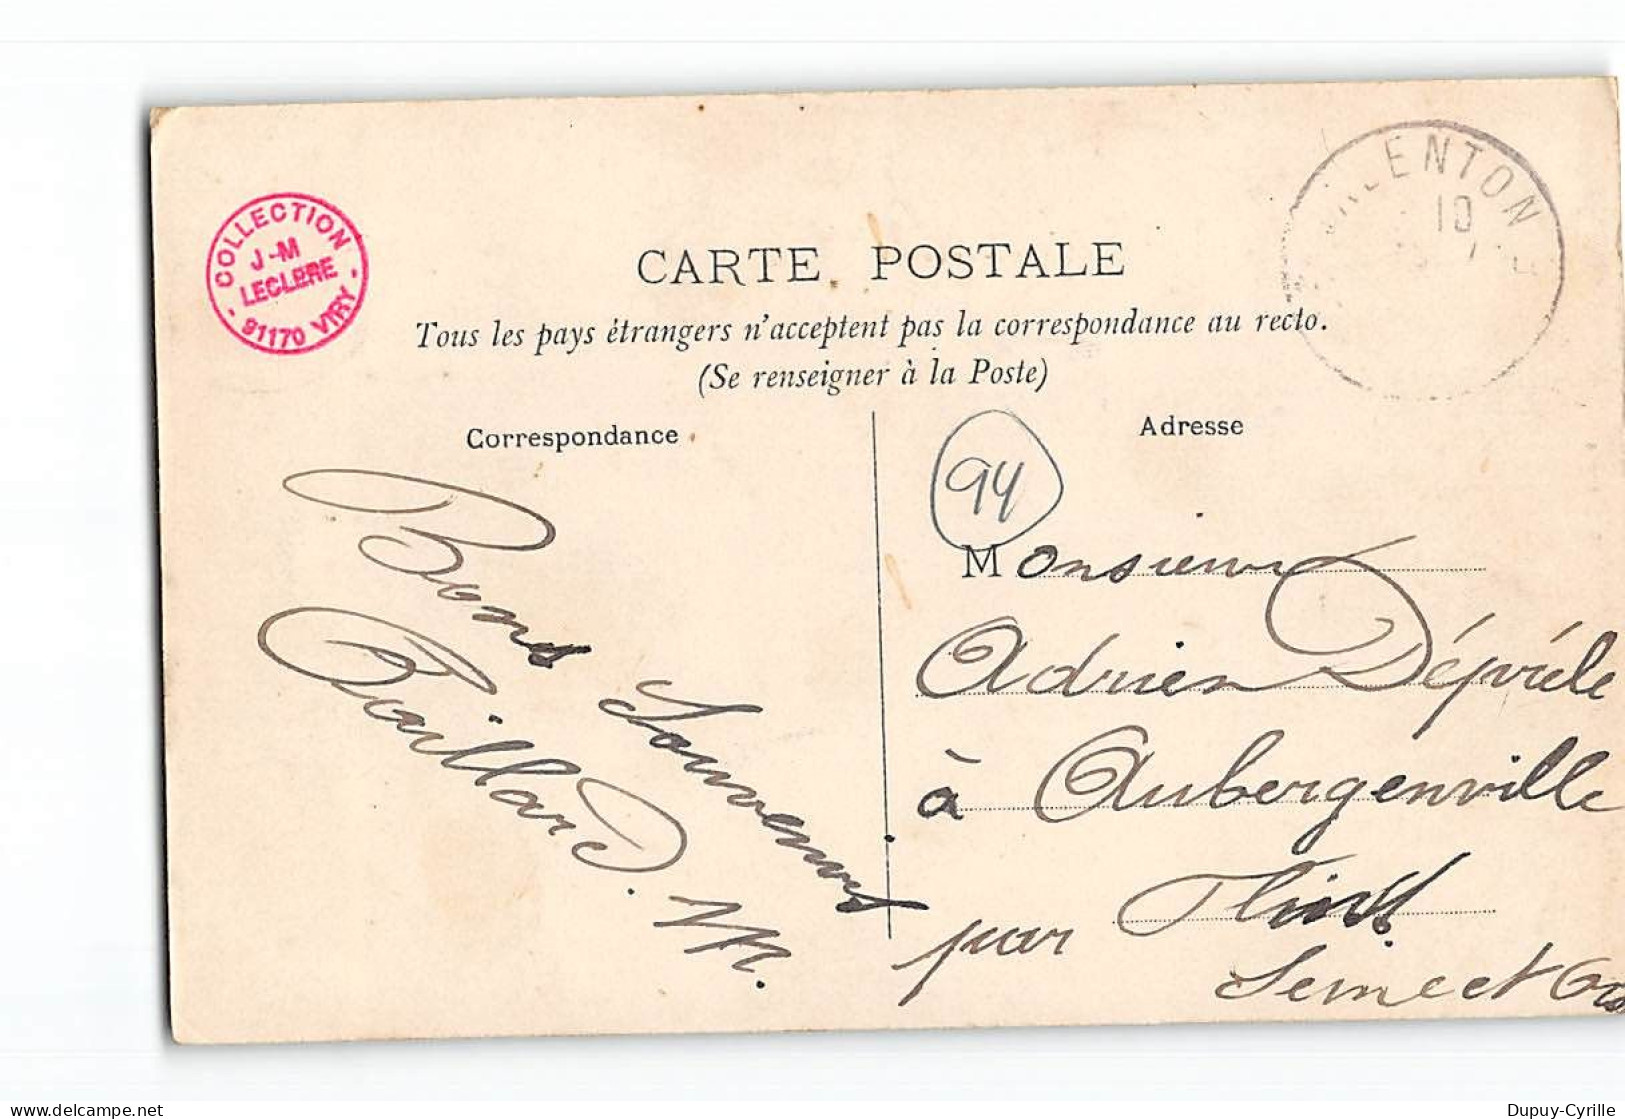 COLLECTION
J-M
LECLERE
- 91170 VIRY -
ENTON
10
CARTE POSTALE
Tous les pays étrangers n'acceptent pas la correspondance au recto.
(Se renseigner à la Poste)
Correspondance
Bons
Souvenirs
Paillard. M.
Adresse
94
Monsieur
Adrien
à Aubergenville
par Flins
Seine et Oise
delcampe.net
Dupuy-Cyrille